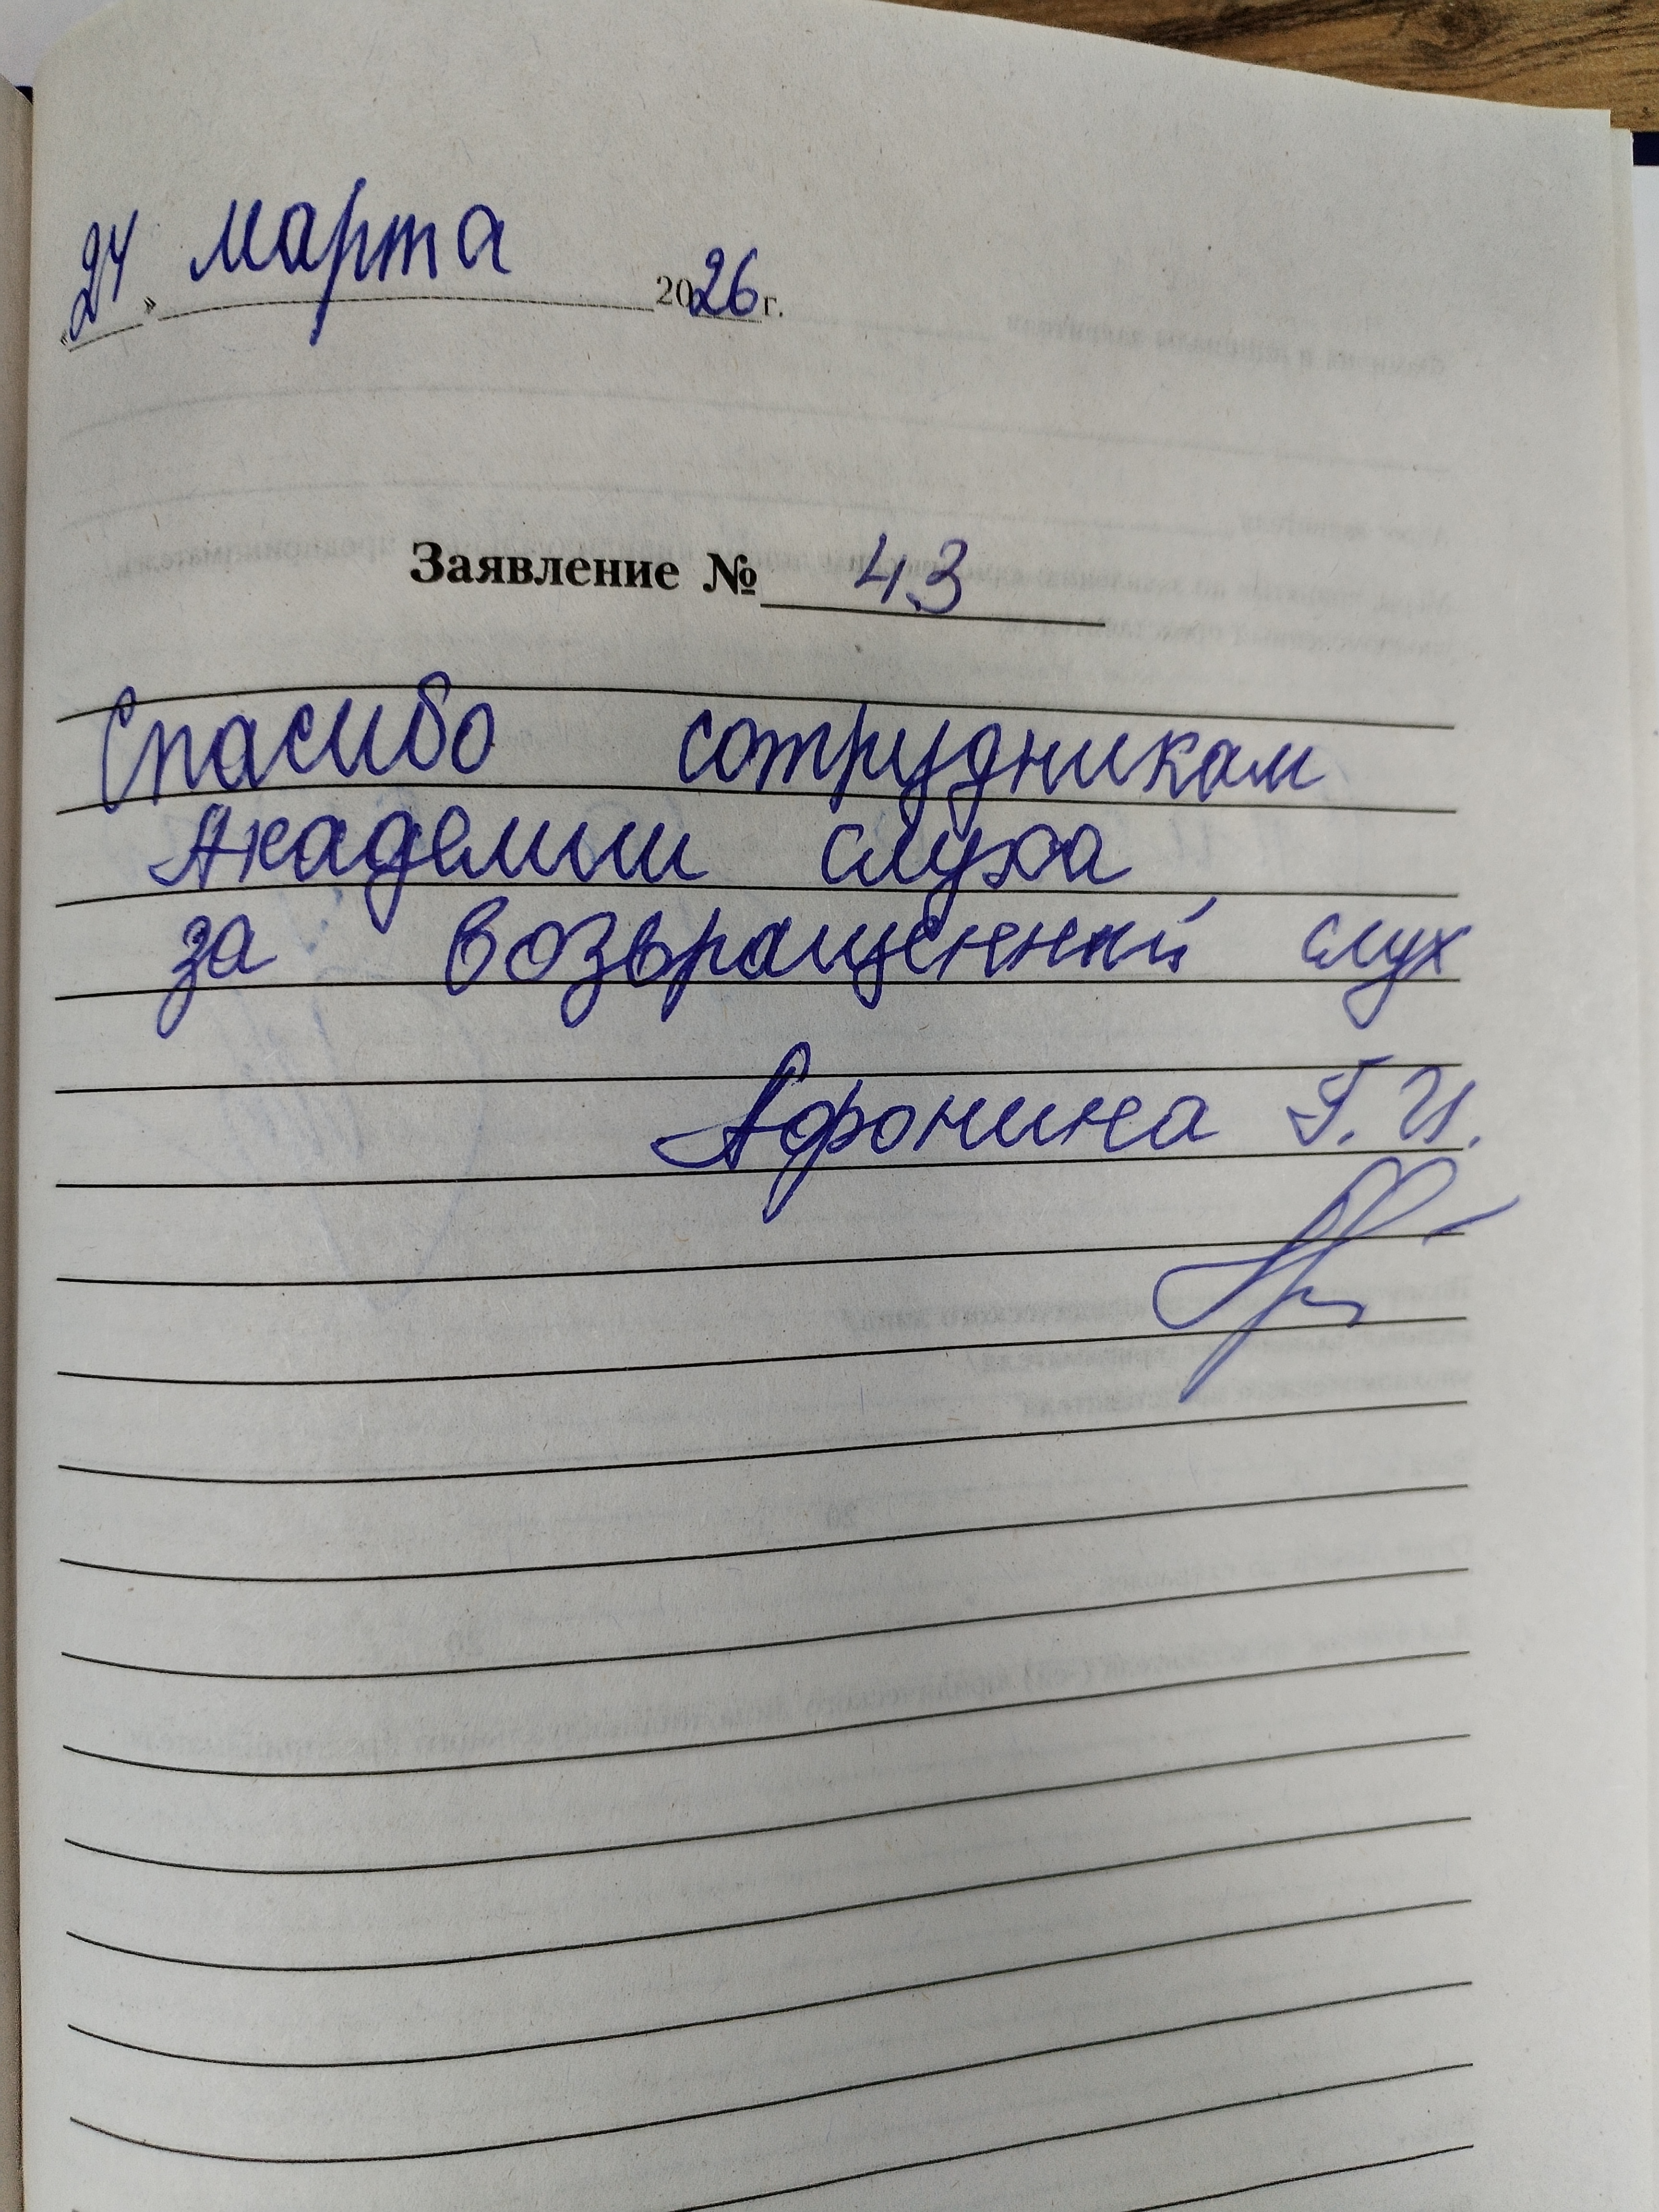 «24» марта 2026 г.
Заявление № 43
Спасибо сотрудникам
Академии слуха
за возвращенный слух
Афонина Г.И.